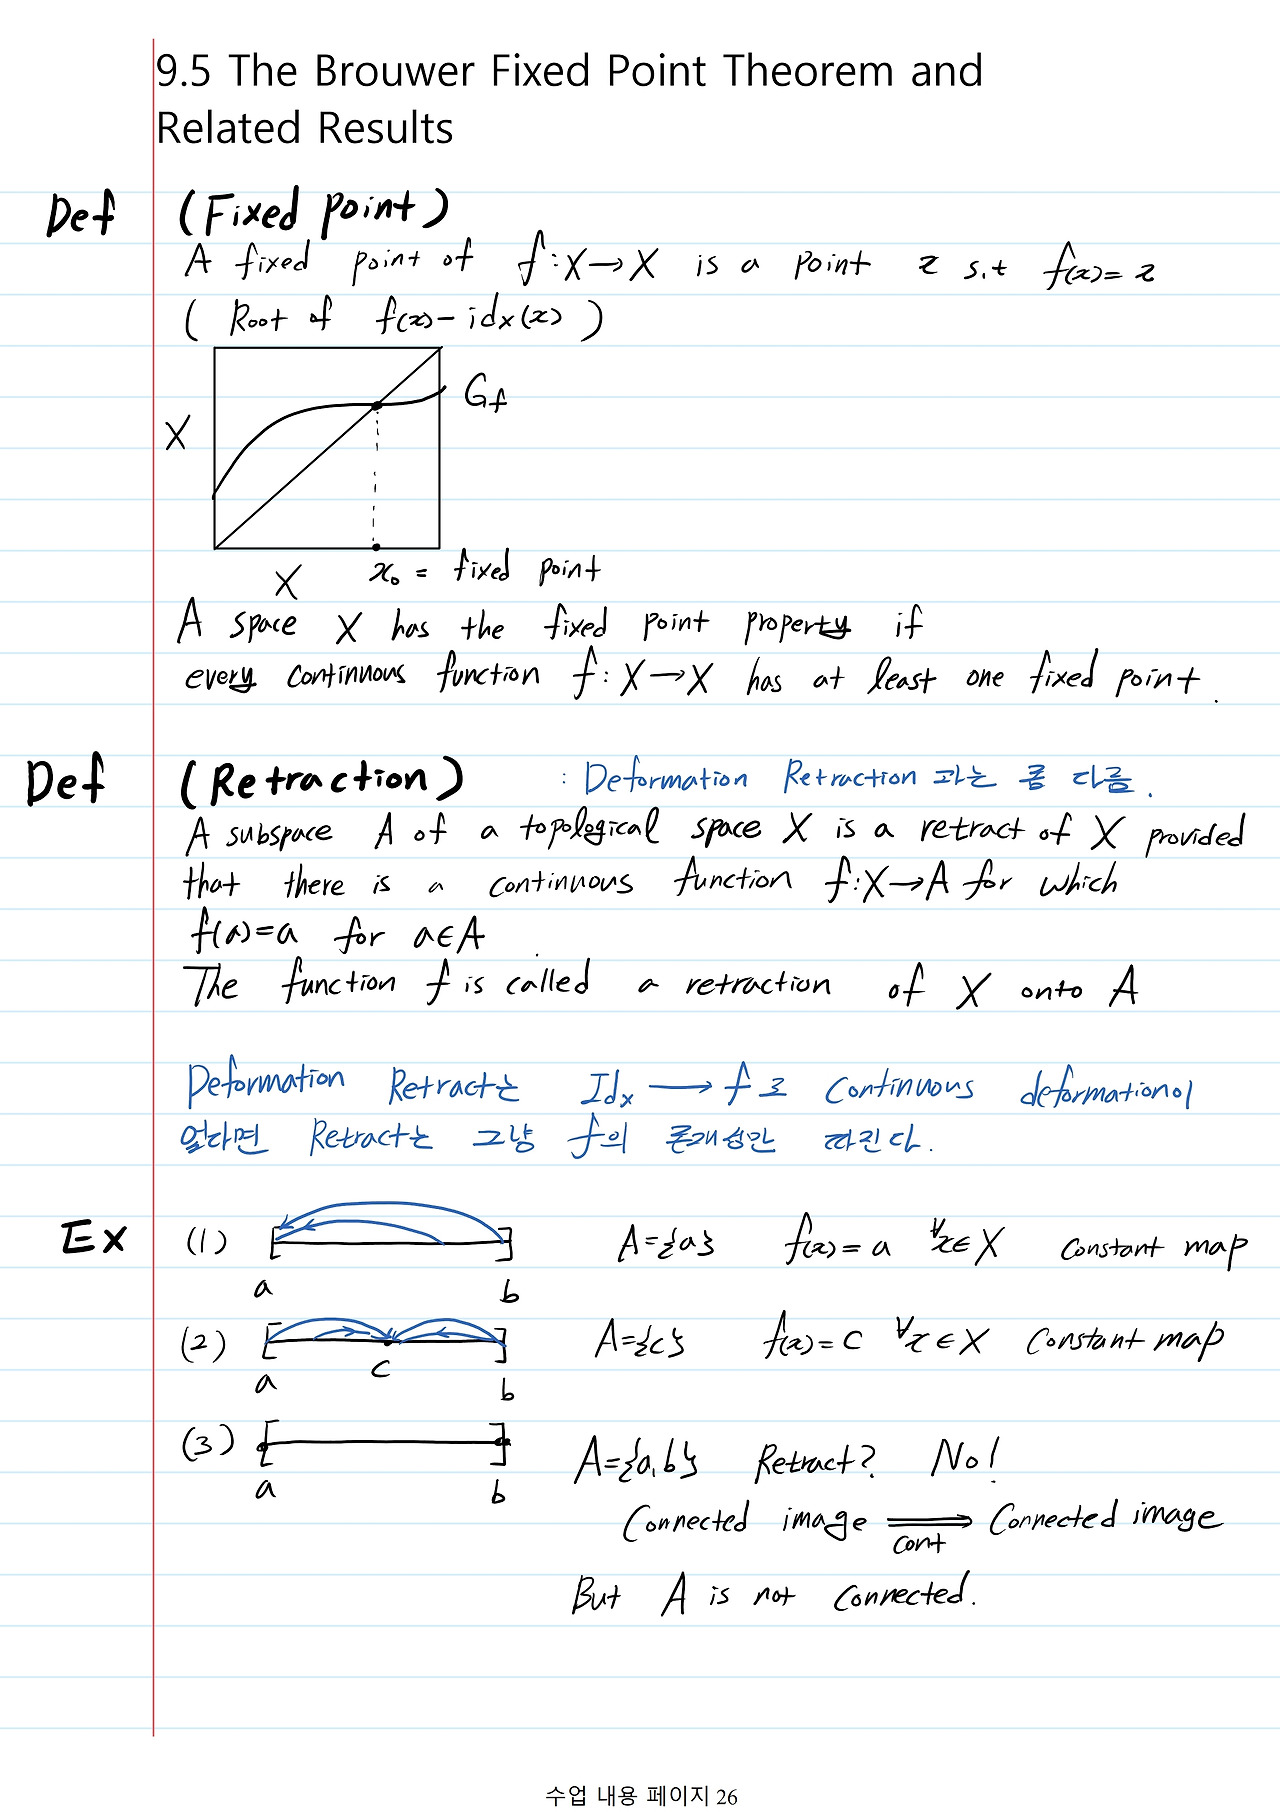 9.5 The Brouwer Fixed Point Theorem and
Related Results
Def (Fixed point)
A fixed point of f:X→X is a point x s.t f(x)=x
( Root of f(x)-id_X(x) )
G_f
X
X x₀ = fixed point
A space X has the fixed point property if
every continuous function f:X→X has at least one fixed point.
Def (Retraction) : Deformation Retraction 과는 좀 다름.
A subspace A of a topological space X is a retract of X provided
that there is a continuous function f:X→A for which
f(a)=a for a∈A
The function f is called a retraction of X onto A
Deformation Retract는 Id_X → f로 continuous deformation이
없다면 Retract는 그냥 f의 존재성만 따진다.
Ex (1) [ ] A={a} f(x)=a ∀x∈X constant map
a b
(2) [ ] A={c} f(x)=c ∀x∈X constant map
a c b
(3) [ ] A={a,b} Retract? No!
a b
Connected image ⟹ Connected image
cont
But A is not connected.
수업 내용 페이지 26